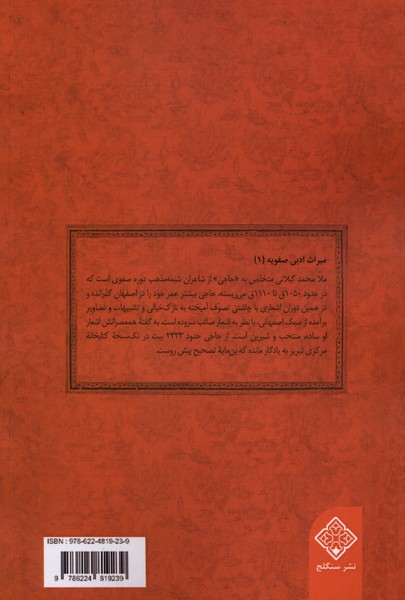 میراث ادبی صفویه (۱)
ملا محمد گیلانی متخلص به «حاجی» از شاعران شیعه‌مذهب دوره صفوی است که
در حدود ۱۰۵۰ق تا ۱۱۱۰ق می‌زیسته. حاجی بیشتر عمر خود را در اصفهان گذرانده و
در همین دوران اشعاری با چاشنی تصوف آمیخته به نازک‌خیالی و تشبیهات و تصاویر
برآمده از سبک اصفهانی، با نظر به اشعار صائب سروده است. به گفتهٔ همعصرانش اشعار
او ساده، منتخب و شیرین است. از حاجی حدود ۲۳۳۳ بیت در تک‌نسخهٔ کتابخانهٔ
مرکزی تبریز به یادگار مانده که بن‌مایهٔ تصحیح پیش روست.
ISBN : 978-622-4819-23-9
9 786224 819239
نشر سنگلج